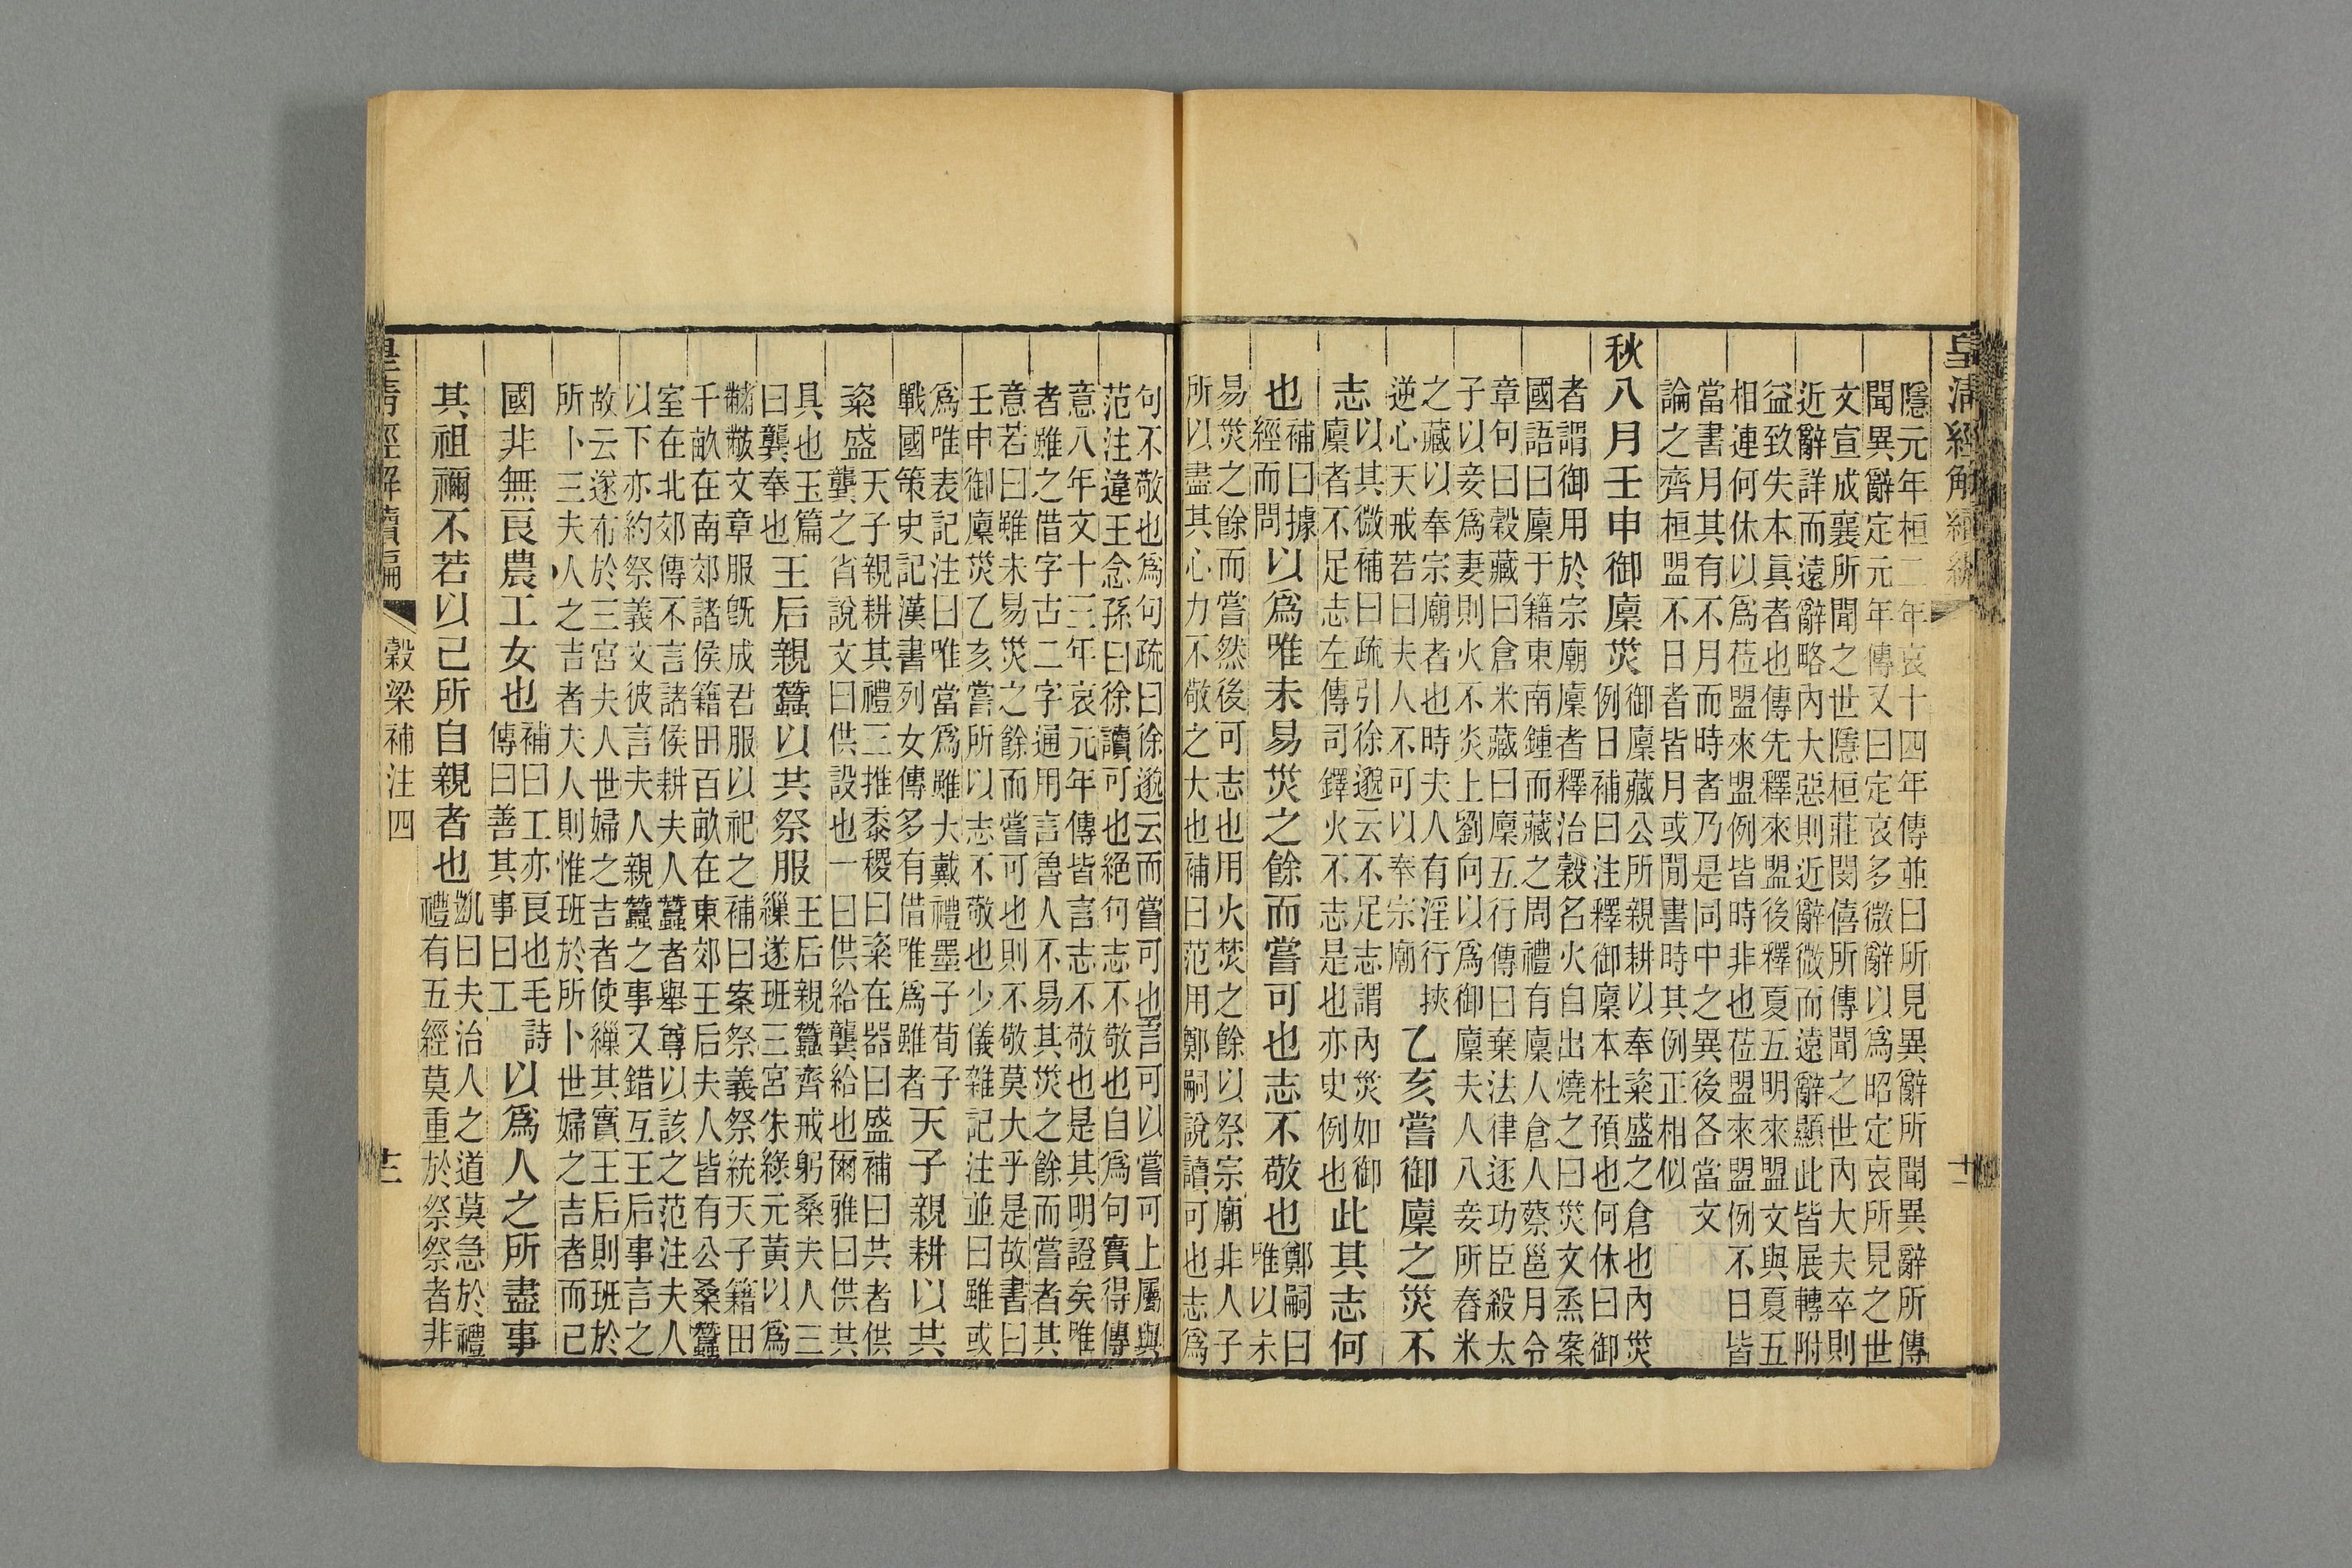 皇清經解續編
隱元年桓二年哀十四年傳並曰所見異辭所聞異辭所傳
聞異辭定元年傳又曰定哀多微辭以爲昭定哀所見之世
文宣成襄所聞之世隱桓莊閔僖所傳聞之世內大夫卒則
近辭詳而遠辭略內大惡則近辭微而遠辭顯此皆展轉附
益致失本眞者也傳先釋來盟後釋夏五明來盟文與夏五
相連何休以爲莅盟來盟例皆時非也莅盟來盟例不日皆
當書月其有不月而時者乃是同中之異後各當文
論之齊桓盟不日者皆月或閒書時其例正相似
秋八月壬申御廩災
御廩藏公所親耕以奉粢盛之倉也內災
例日補曰注釋御廩本杜預也何休曰御
者謂御用於宗廟廩者釋治穀名火自出燒之曰災文烝案
國語曰廩于籍東南鍾而藏之周禮有廩人倉人蔡邕月令
章句曰穀藏曰倉米藏曰廩五行傳曰棄法律逐功臣殺太
子以妾爲妻則火不炎上劉向以爲御廩夫人八妾所舂米
之藏以奉宗廟者也時夫人有淫行挾
逆心天戒若曰夫人不可以奉宗廟
乙亥嘗御廩之災不
志
以其微補曰疏引徐邈云不足志謂內災如御
廩者不足志左傳司鐸火不志是也亦史例也
此其志何
也
補曰據
經而問
以爲唯未易災之餘而嘗可也志不敬也
鄭嗣曰
唯以未
易災之餘而嘗然後可志也用火焚之餘以祭宗廟非人子
所以盡其心力不敬之大也補曰范用鄭嗣說讀可也志爲
句不敬也爲句疏曰徐邈云而嘗可也言可以嘗可上屬與
范注違王念孫曰徐讀可也絕句志不敬也自爲句實得傳
意八年文十三年哀元年傳皆言志不敬也是其明證矣唯
者雖之借字古二字通用言魯人不易其災之餘而嘗者其
意若曰雖未易災之餘而嘗可也則不敬莫大乎是故書曰
壬申御廩災乙亥嘗所以志不敬也少儀雜記注並曰雖或
爲唯表記注曰唯當爲雖大戴禮墨子荀子
戰國策史記漢書列女傳多有借唯爲雖者
天子親耕以共
粢盛
天子親耕其禮三推黍稷曰粢在器曰盛補曰共者供
龔之省說文曰供設也一曰供給龔給也爾雅曰供共
具也玉篇
曰龔奉也
王后親蠶以共祭服
王后親蠶齊戒躬桑夫人三
繅遂班三宮朱綠元黃以爲
黼黻文章服旣成君服以祀之補曰案祭義祭統天子籍田
千畝在南郊諸侯籍田百畝在東郊王后夫人皆有公桑蠶
室在北郊傳不言諸侯耕夫人蠶者舉尊以該之范注夫人
以下亦約祭義文彼言夫人親蠶之事又錯互王后事言之
故云遂布於三宮夫人世婦之吉者使繅其實王后則班於
所卜三夫人之吉者夫人則惟班於所卜世婦之吉者而已
國非無良農工女也
補曰工亦良也毛詩
傳曰善其事曰工
以爲人之所盡事
其祖禰不若以己所自親者也
凱曰夫治人之道莫急於禮
禮有五經莫重於祭祭者非
皇清經解續編
穀梁補注四